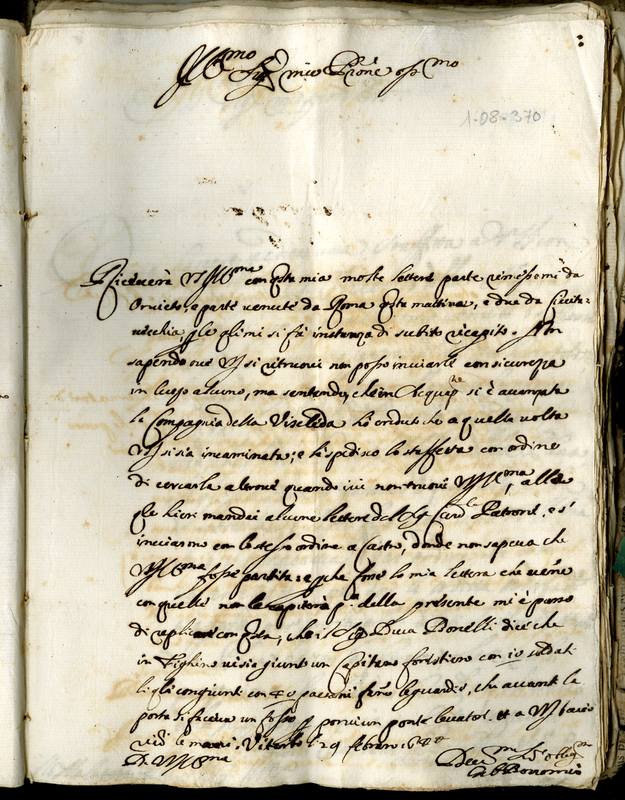 Ill.mo Sig.r mio P.rone oss.mo
1-08-370
Riceverà V.S. Ill.ma con q.sta mia molte lettere parte rimessemi da
Orvieto, e parte venute da Roma q.sta mattina, e due da Civita-
vecchia, p. le q.li mi si fà instanza di subito ricapito. Non
sapendo ove V.S. si ritruovi non posso inviarle con sicurezza
in luogo alcuno, ma sentendo, che in Acquap.te si è avanzata
la Compagnia della ho creduto che a quella volta
V.S. si sia incaminata; e la spedisco lo staffetta con ordine
di cercarla altrove quando ivi non truovi V.S. Ill.ma, alla
q.le hieri mandai alcune lettere del S.r Card.le Padrone, e s'
inviarono con lo stesso ordine a Castro, donde non sapeva che
V.S. Ill.ma fosse partita: e p.che forse la mia lettera che venne
con quelle non le capiterà p.a della presente mi è parso
di replicare con q.sta, che il Sig.r Duca Bonelli dice che
in sia giunto un Capitano forestiero con 10 soldati
li q.li congiunti con 40 paesani fanno le guardie, che avanti la
porta si faceva un fosso p. porvi un ponte levator. et a V.S. bacio
le mani. Viterbo li 29 febraro
D. V.S. Ill.ma
Dev.mo S.re obblig.mo
Bonomi